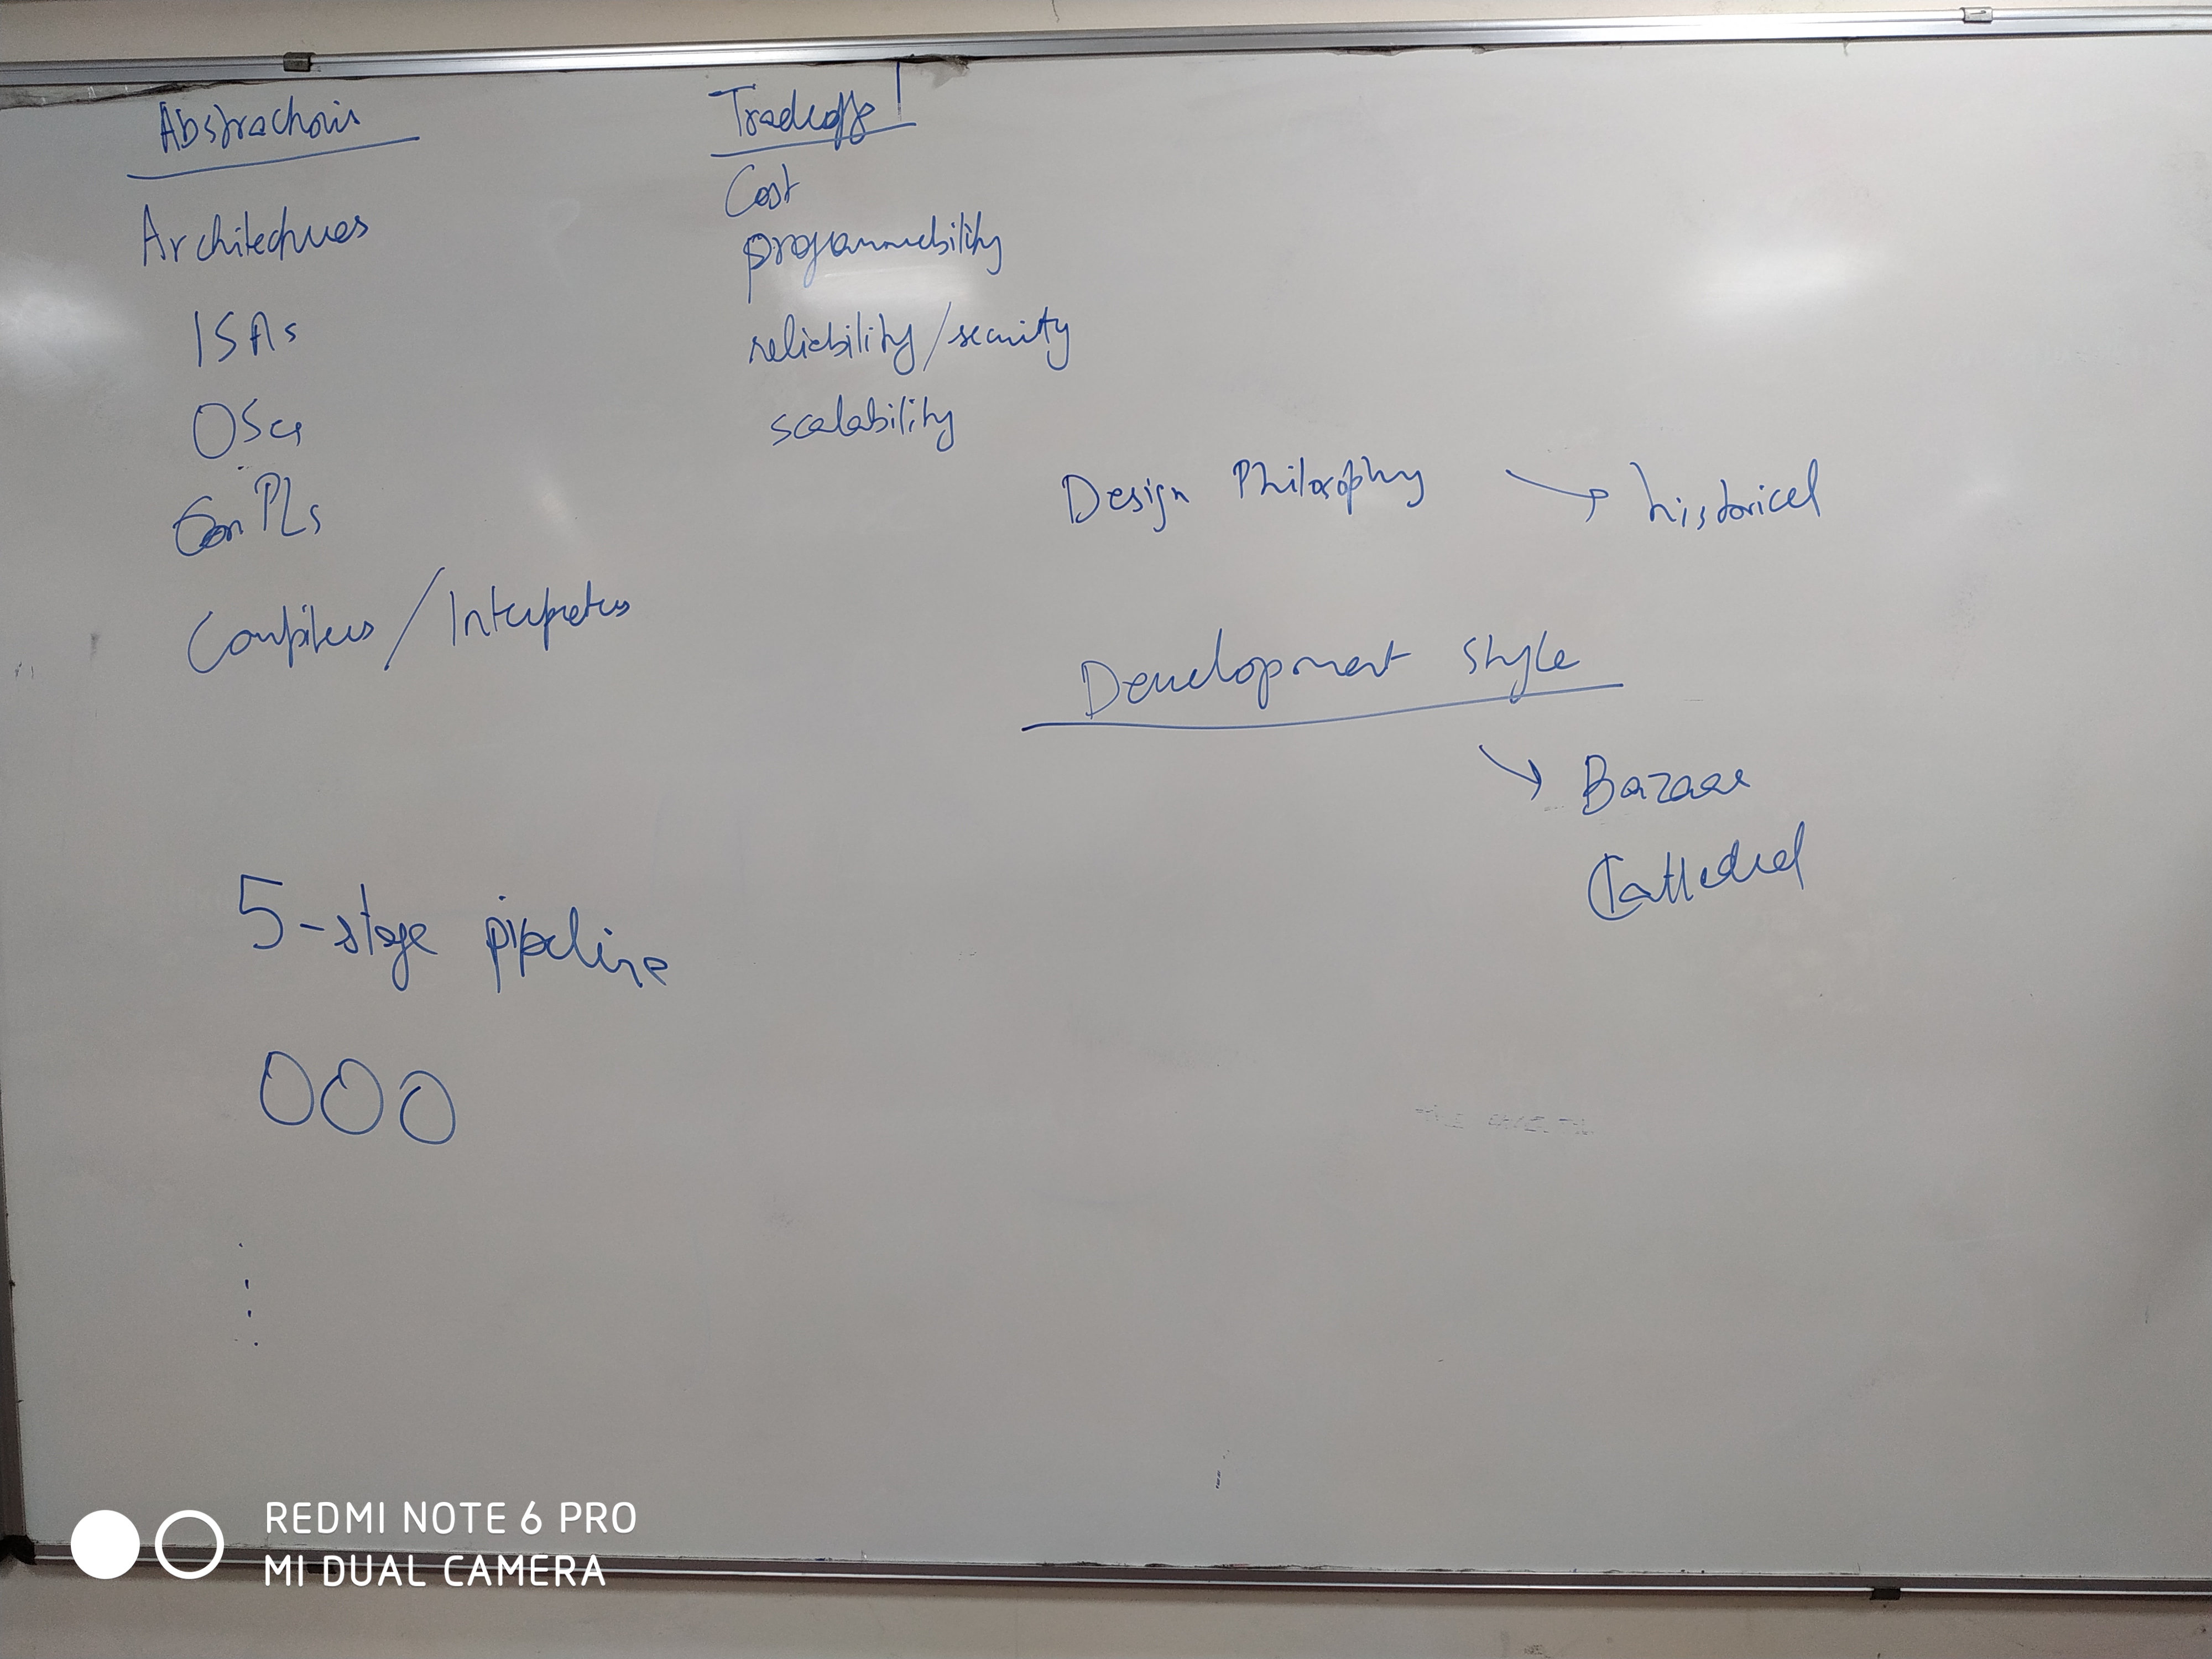 Abstractions
Architectures
ISAs
OSes
PLs
Compilers / Interpreters
5-stage pipeline
OOO
Tradeoffs
Cost
programmability
reliability/security
scalability
Design Philosophy → historical
Development style
→ Bazaar
Cathedral
REDMI NOTE 6 PRO
MI DUAL CAMERA